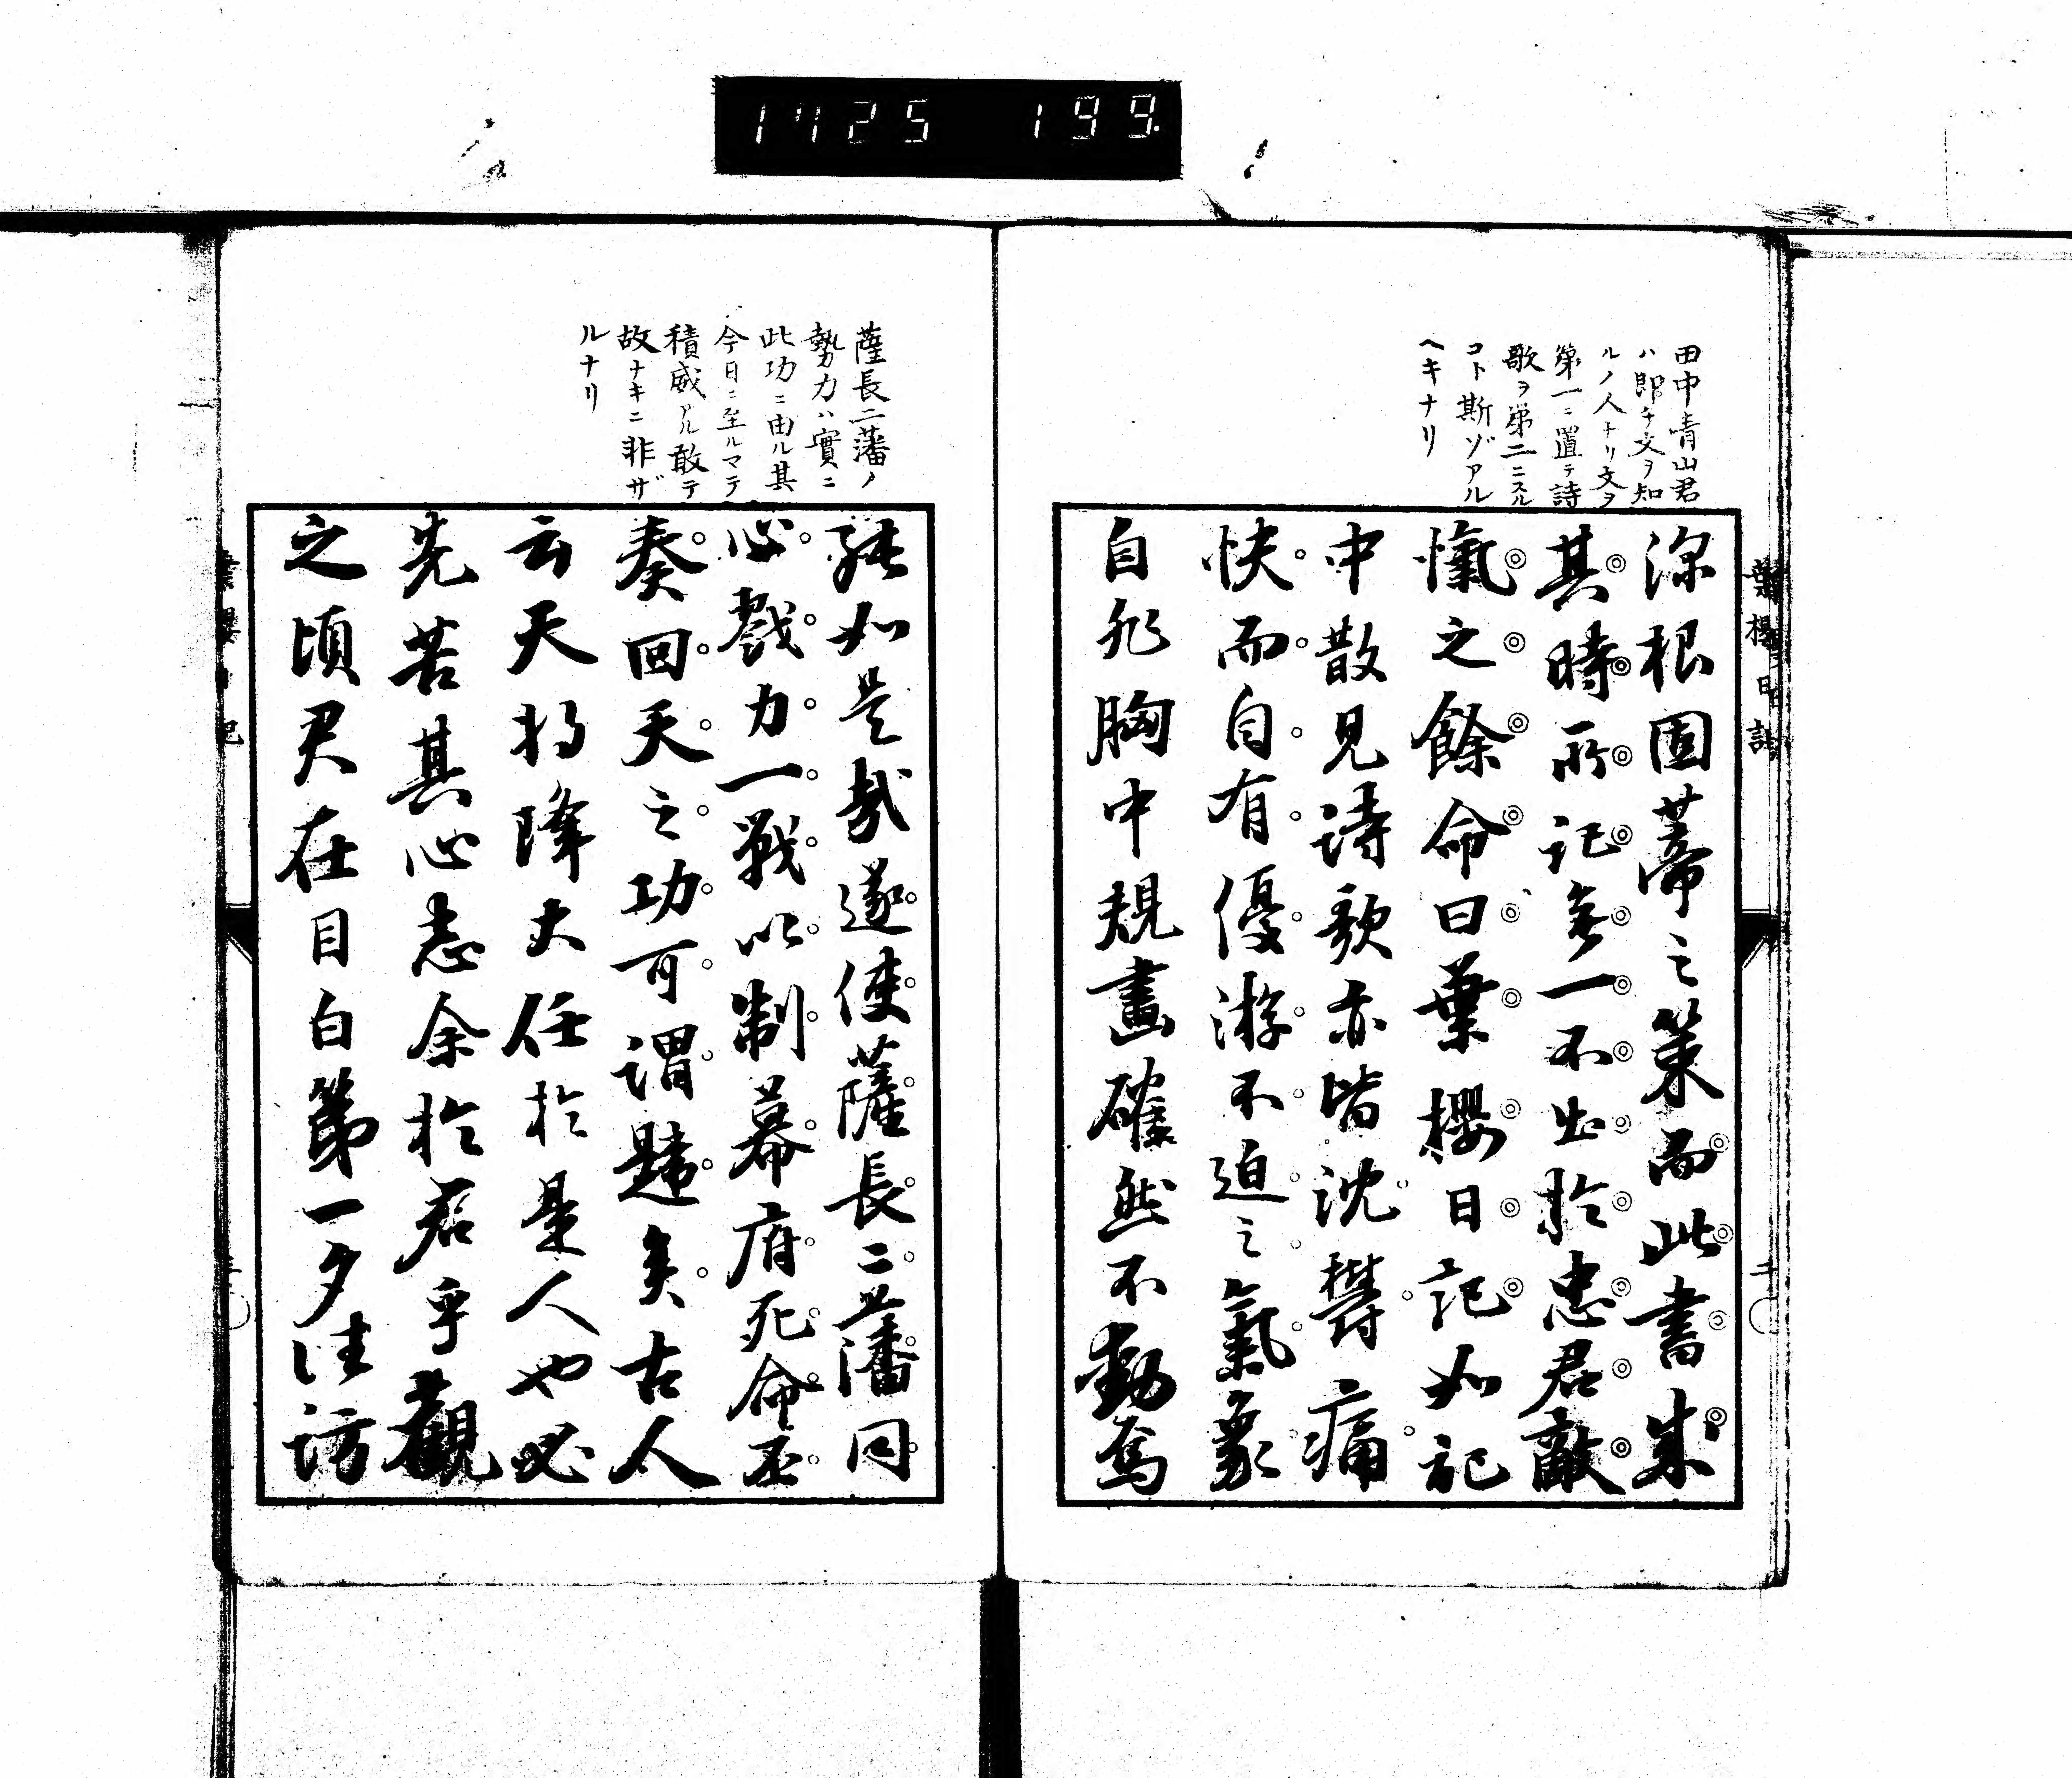 1725 199
田中青山君
ハ即チ文ヲ知
ルノ人ナリ文ヲ
第一ニ置テ詩
歌ヲ第二ニスル
コト斯ゾアル
ヘキナリ
深根固蔕之策而此書成
其時所記無一不出於忠君敵
愾之餘命曰葉櫻日記如記
中散見詩歌亦皆沈鬱痛
快而自有優游不迫之氣象
自非胸中規畫確然不動焉
薩長二藩ノ
勢力ハ實ニ
此功ニ由ル其
今日ニ至ルマテ
積威アル敢テ
故ナキニ非ザ
ルナリ
能如是哉遂使薩長二藩同
心戮力一戰以制幕府死命丕
奏回天之功可謂韙矣古人
云天将降大任於是人也必
先苦其心志余於君乎觀
之頃君在目白第一夕往訪
葉櫻日記